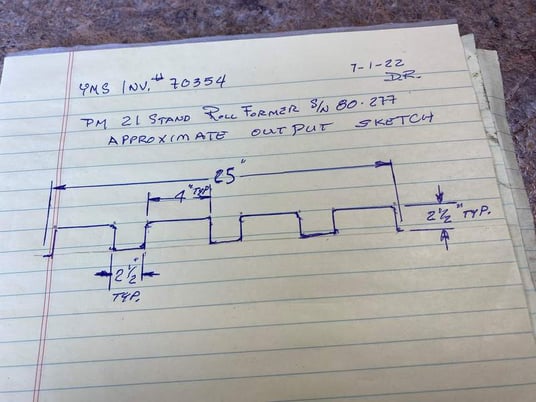 YMS INV.# 70354
7-1-22
D.R.
PM 21 STAND ROLL FORMER S/N 80-277
APPROXIMATE OUTPUT SKETCH
25"
4" TYP.
2 1/2" TYP.
2 1/2"
TYP.